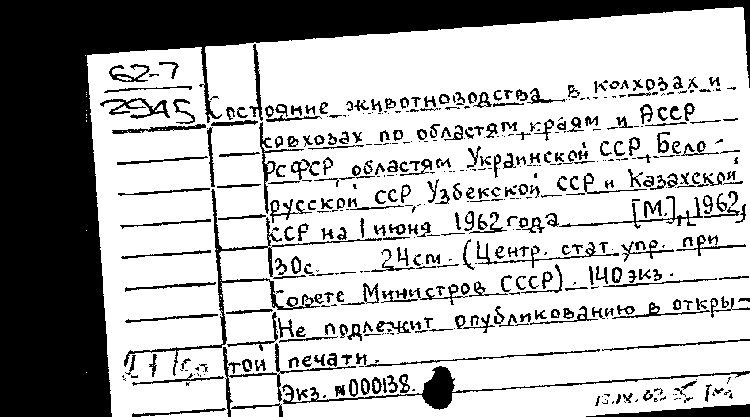 62-7
2945
Состояние животноводства в колхозах и
совхозах по областям, краям и АССР
РСФСР, областям Украинской ССР, Бело-
русской ССР, Узбекской ССР и Казахской
ССР на 1 июня 1962 года [М.], 1962,
30с. 24см. (Центр. стат. упр. при
Совете Министров СССР). 140 экз.
Не подлежит опубликованию в откры-
той печати.
Экз. №000138.